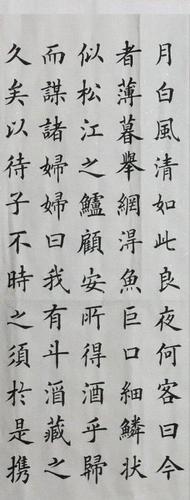 月白風清如此良夜何客曰今
者薄暮舉網得魚巨口細鱗狀
似松江之鱸顧安所得酒乎歸
而謀諸婦婦曰我有斗酒藏之
久矣以待子不時之須於是携